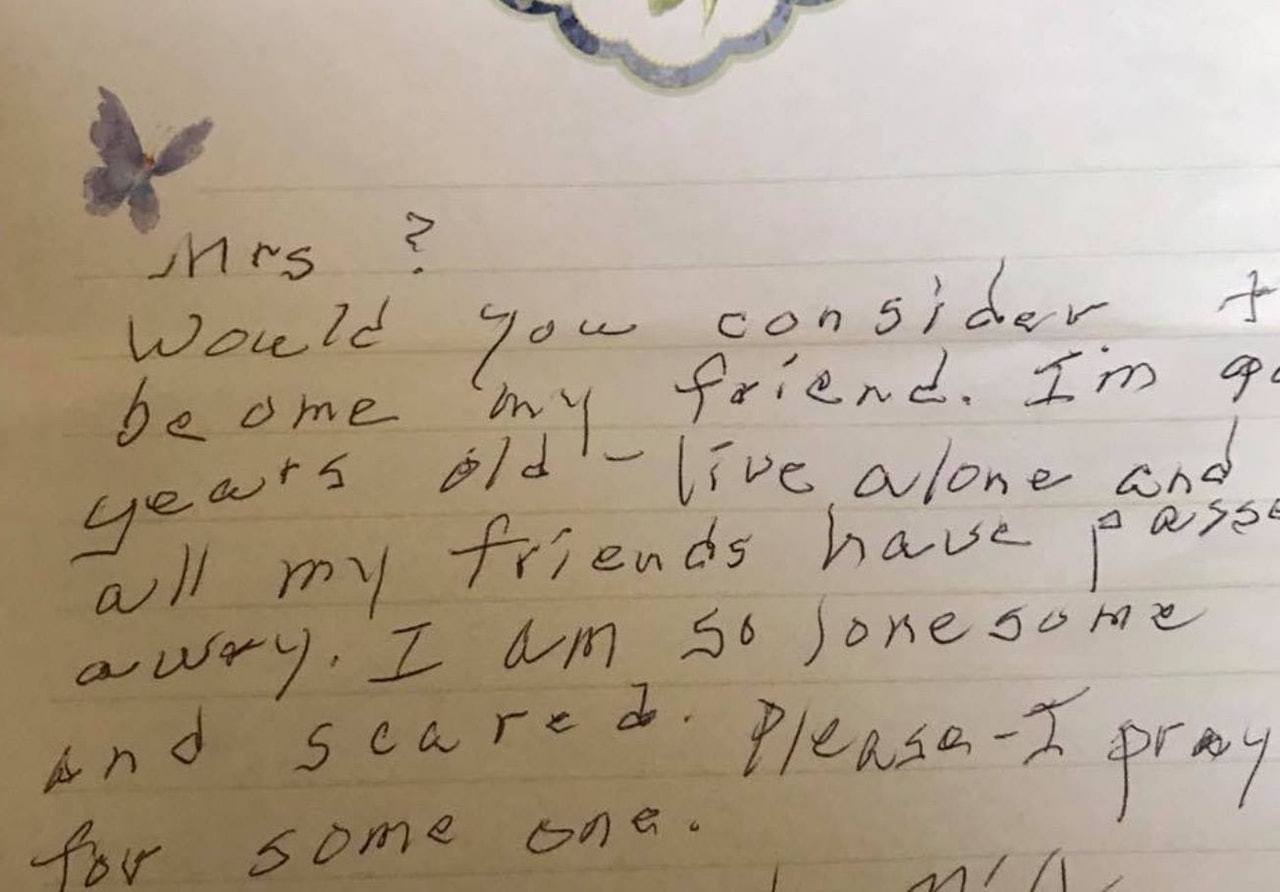 Mrs ?
Would you consider t
beome my friend. I'm 90
years old - live alone and
all my friends have passe
away. I am so lonesome
and scared. Please - I pray
for some one.